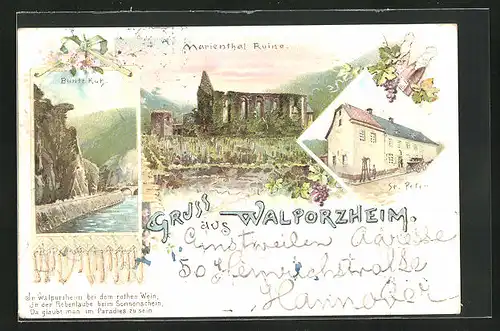 Marienthal Ruine.
Bunte Kuh.
St. Peter
GRUSS aus WALPORZHEIM.
Einstweilen Adresse
50 Heinrichstrasse
Hannover
In Walporzheim bei dem rothen Wein,
In der Rebenlaube beim Sonnenschein,
Da glaubt man im Paradies zu sein